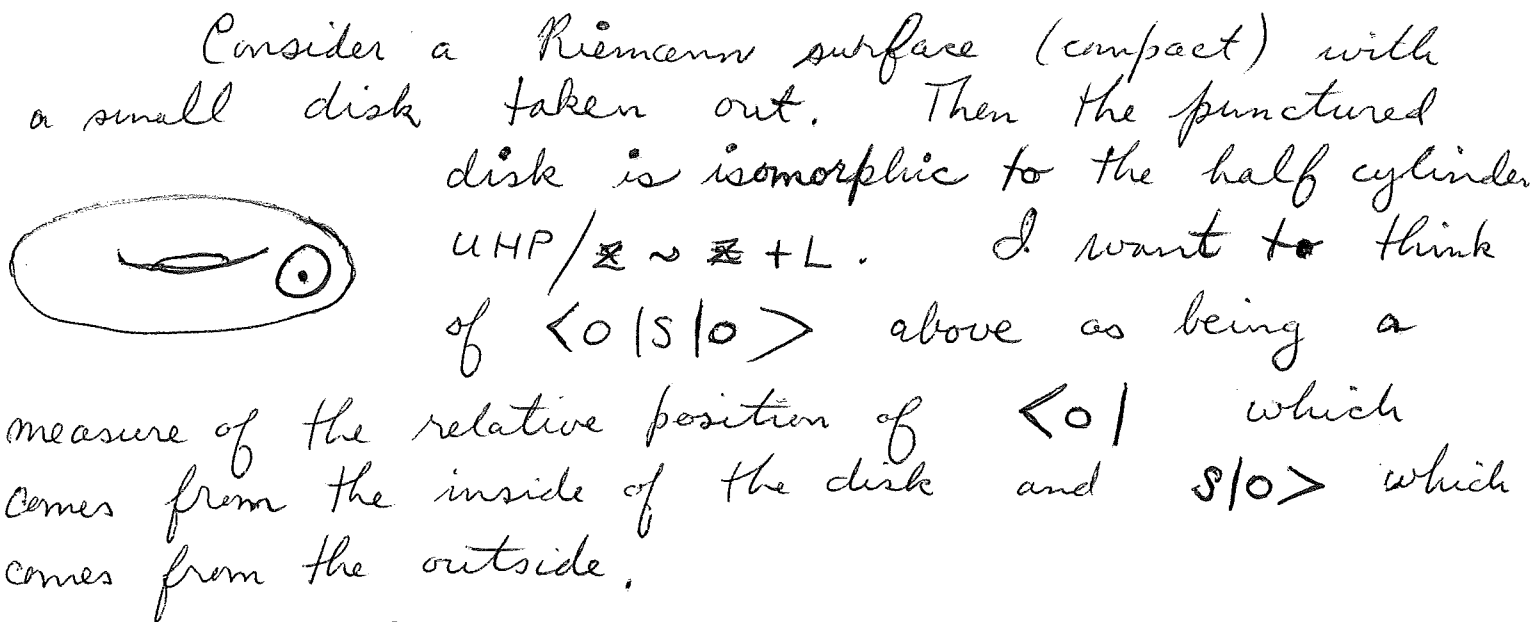 Consider a Riemann surface (compact) with
a small disk taken out. Then the punctured
disk is isomorphic to the half cylinder
UHP/z ~ z + L. I want to think
of <0|S|0> above as being a
measure of the relative position of <0| which
comes from the inside of the disk and S|0> which
comes from the outside.